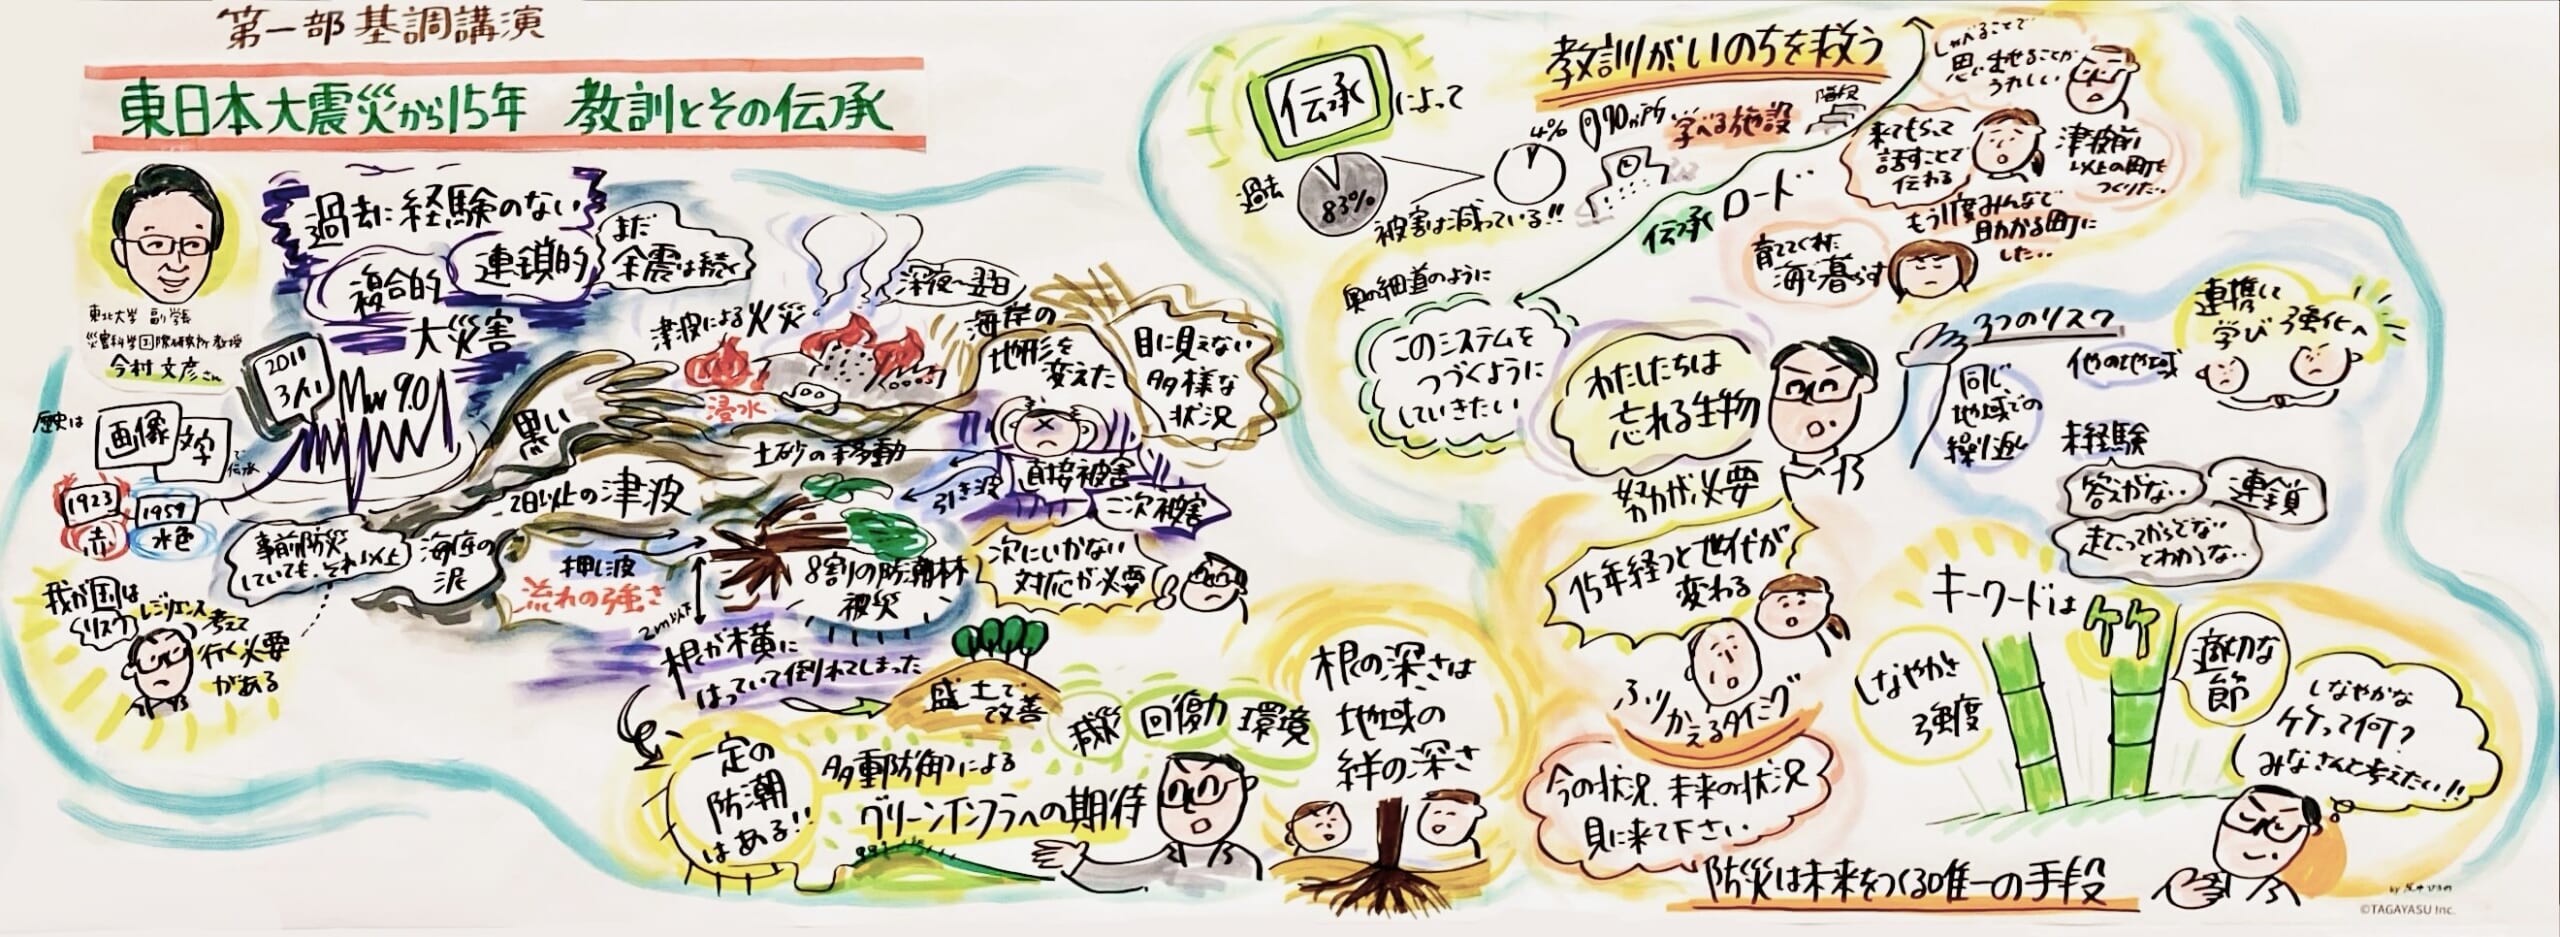 第一部 基調講演
東日本大震災から15年 教訓とその伝承
東北大学 副学長
災害科学国際研究所 教授
今村 文彦さん
過去に経験のない
複合的
連鎖的
大災害
まだ
余震は続く
2011
3/11
Mw 9.0
歴史は
画像
文字
で
伝承
1923
赤
1959
水色
事前防災
していても、それ以上
我が国は
リスク
レジリエンス
考えて
行く必要
がある
津波による火災
深夜〜翌日
浸水
黒い
土砂の移動
2日以上の津波
海底の
泥
海岸の
地形を
変えた
目に見えない
多様な
状況
直接被害
二次被害
引き波
押し波
流れの強さ
8割の防潮林
被災
次にいかない
対応が必要
2m以下
根が横に
はっていて倒れてしまった
盛土で
改善
一定の
防潮
はある!!
多重防御による
グリーンインフラへの期待
減災
回復力
環境
根の深さは
地域の
絆の深さ
伝承
によって
過去
83%
4%
被害は減っている!!
教訓がいのちを救う
90ヶ所
学べる施設
階段
伝承ロード
奥の細道のように
このシステムを
つづくように
していきたい
しゃべることで
思い出せることが
うれしい
来てもらって
話すことで
伝わる
津波前
以上の町を
つくりた..
もう1度みんなで
助かる町に
した..
育ててくれた
海で暮らす
わたしたちは
忘れる生物
努力が必要
15年経つと世代が
変わる
ふりかえるタイミング
今の状況、未来の状況
見に来て下さい
3つのリスク
同じ
地域での
繰り返し
他の地域
連携して
学び強化へ
未経験
答えがない..
連鎖
走ってからでない
とわからな..
キーワードは
竹
しなやかさ
強度
適切な
節
しなやかな
竹って何?
みなさんと考えたい!!
防災は未来をつくる唯一の手段
©TAGAYASU Inc.